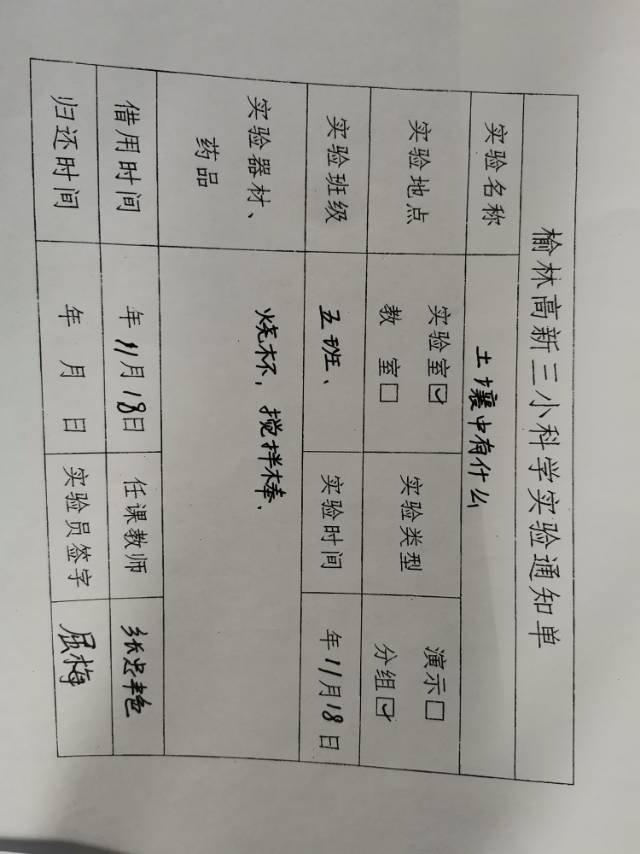 榆林高新三小科学实验通知单
实验名称 土壤中有什么
实验地点 实验室☑ 教 室□ 实验类型 演示□ 分组☑
实验班级 五班、 实验时间 年11月18日
实验器材、
药品
烧杯，搅拌棒.
借用时间 年11月18日 任课教师
归还时间 年 月 日 实验员签字 屈梅